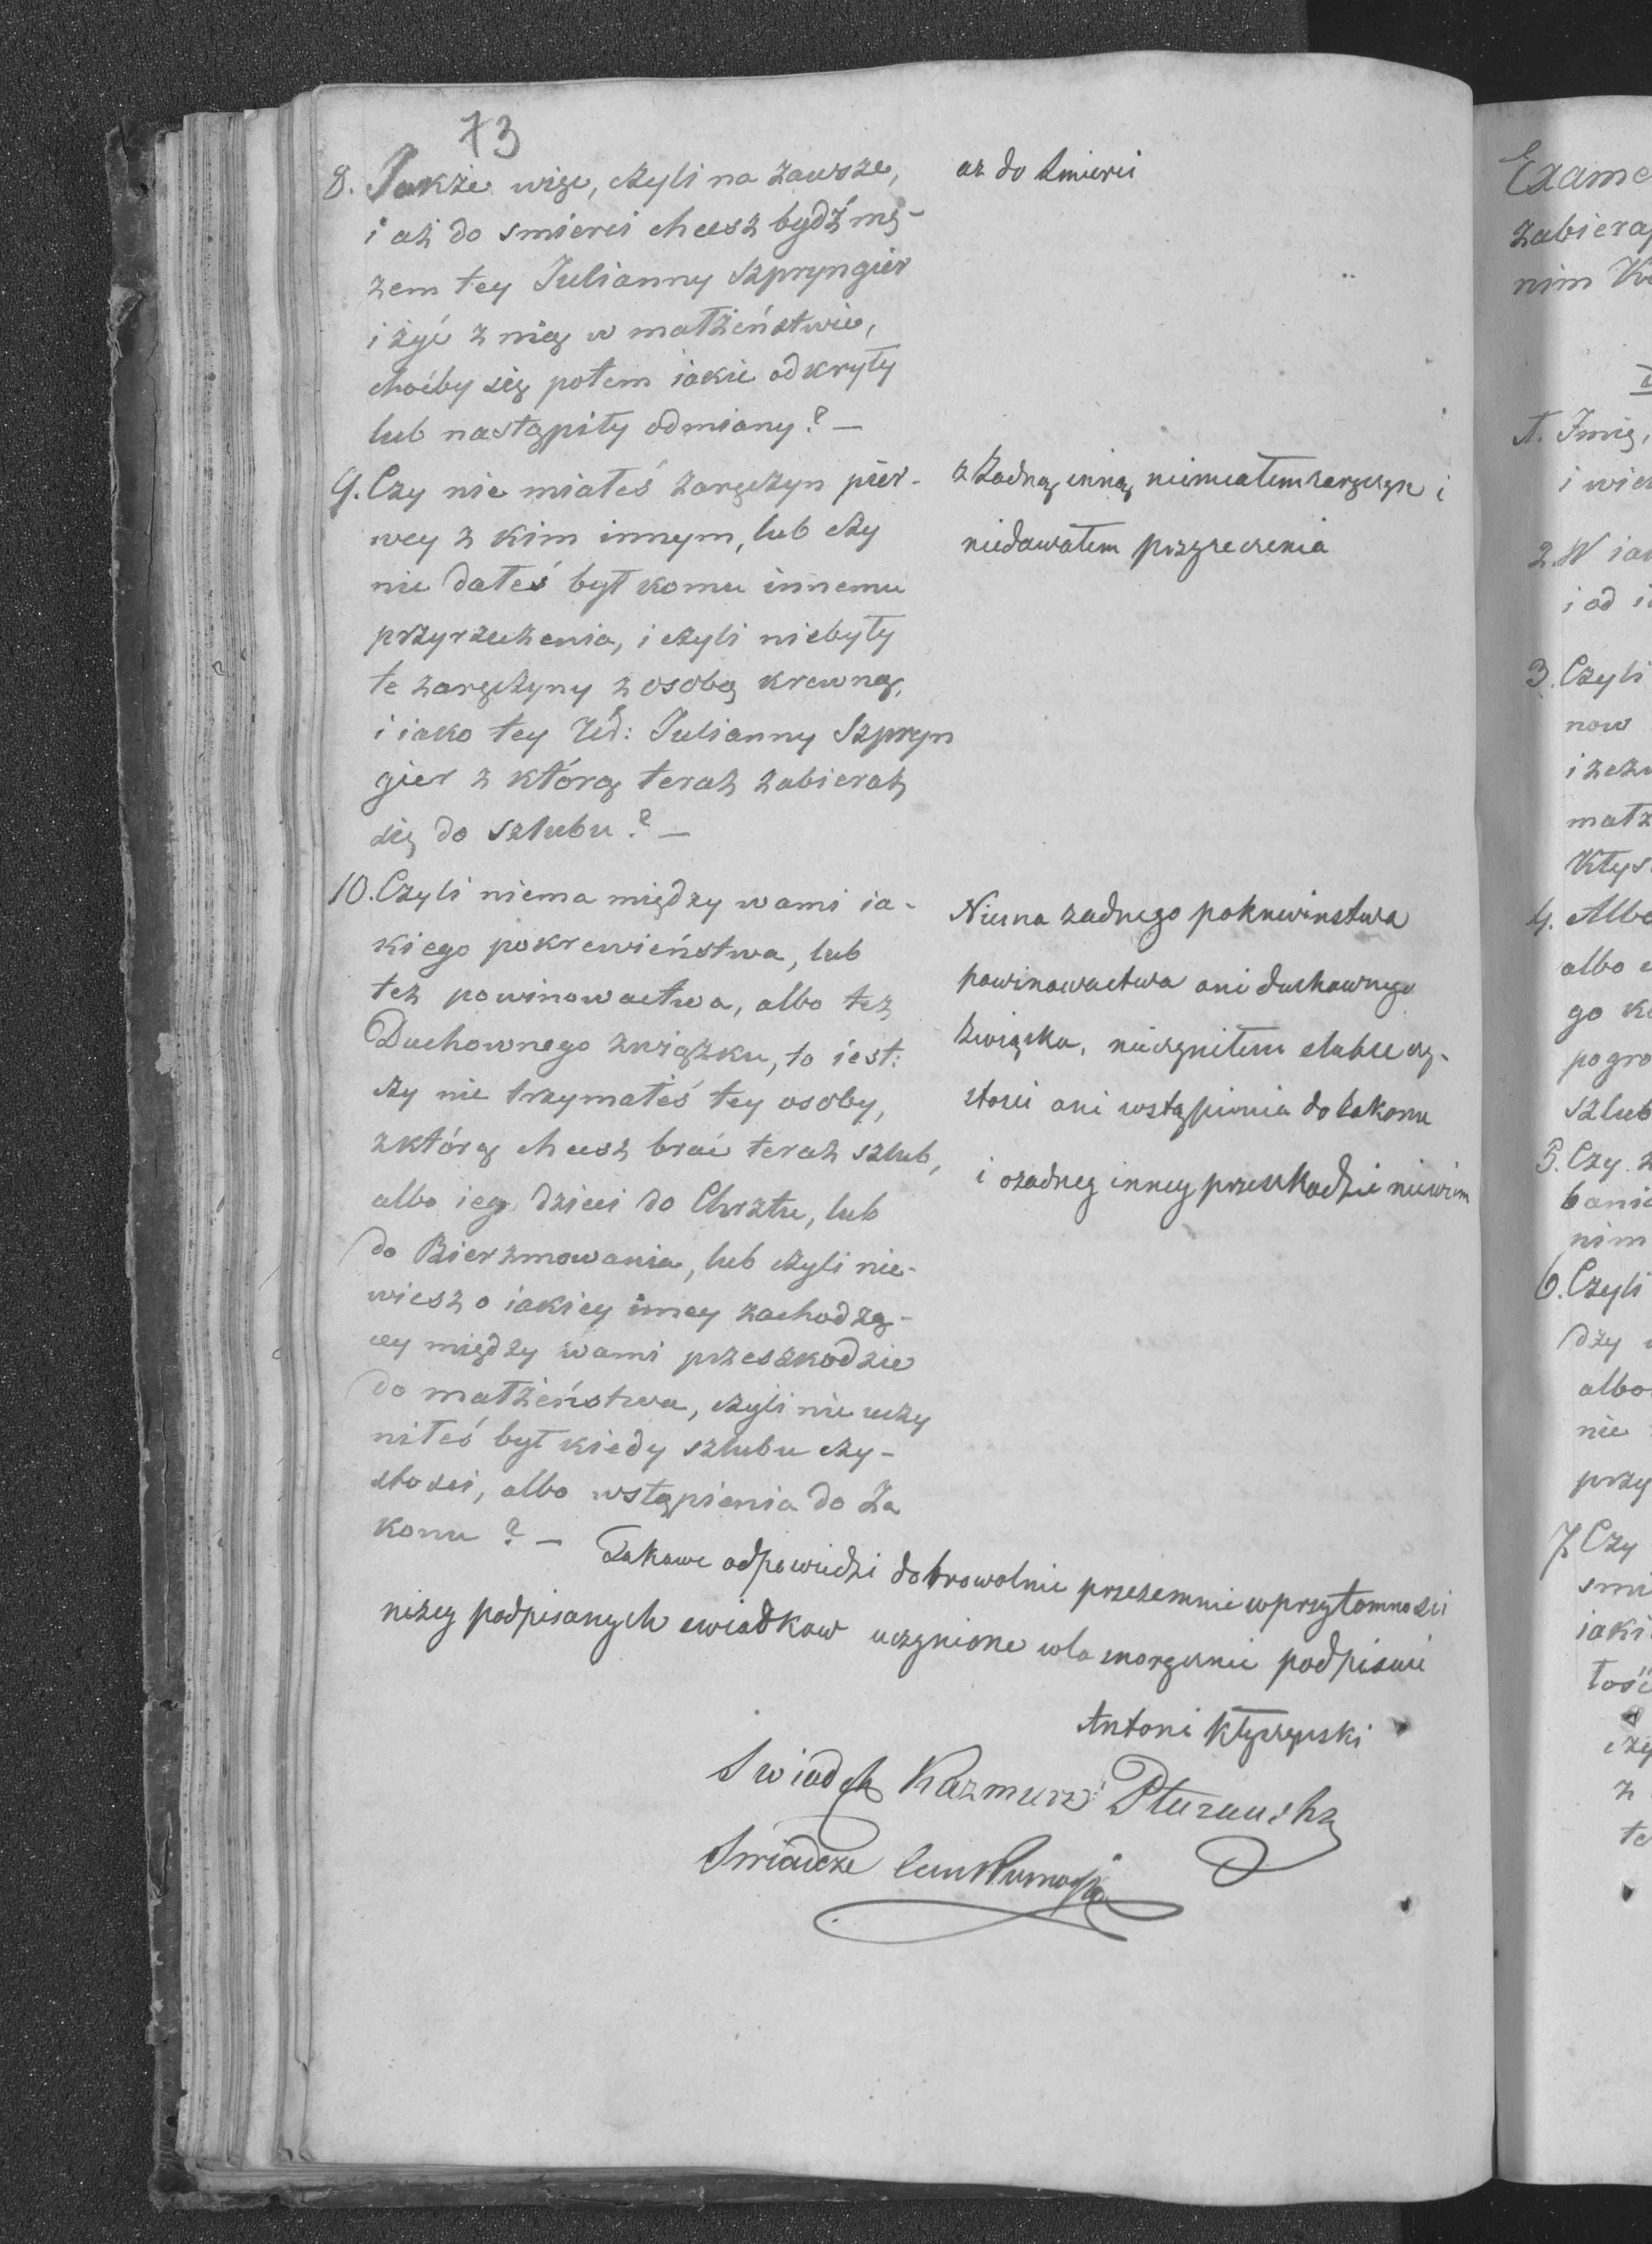 73
8. Jakże więc, czyli na zawsze,
i aż do smierci chcesz bydź mę-
żem tey Julianny Szpryngier
i żyć z nią w małżeństwie,
choćby się potem iakie odkryły
lub nastąpiły odmiany? —
az do Smierci
9. Czy nie miałeś zaręczyn pier-
wey z kim innym, lub czy
nie dałeś był komu innemu
przyrzeczenia, i czyli niebyły
te zaręczyny z osobą krewną,
i iako tey Ur: Julianny Szpryn
gier z którą teraz zabierasz
się do szlubu? —
z Żadną inną niemiałem zaręczyn i
niedawałem przyrzeczenia
10. Czyli niema między wami ia-
kiego pokrewieństwa, lub
też powinowactwa, albo też
Duchownego związku, to iest:
czy nie trzymałeś tey osoby,
z którą chcesz brać teraz szlub,
albo iey dzieci do Chrztu, lub
do Bierzmowania, lub czyli nie-
wiesz o iakiey inney zachodzą-
cey między wami przeszkodzie
do małżeństwa, czyli nie uczy
niłeś był kiedy szlubu czy-
stości, albo wstąpienia do Za
konu? —
Niema zadnego pokrewinstwa
powinowactwa ani duchownego
Związku, nieczyniłem slubu czy-
stosci ani wstąpienia do Zakonu
i ozadney inney przeszkodzie niewiem
Takowe odpowiedzi dobrowolnie przezemnie wprzytomnosci
niżey podpisanych swiadkow uczynione własnoręcznie podpisuie
Antoni Kłyszynski
Swiadek Kazmierz
Swiadcze
Exame
zabiera
nim
1. Imię,
i wie
2. W ia
i od
3. Czyli
now
i zez
małż
Kłys
4. Albo
albo
go
pogro
szlub
5. Czy
bani
nim
6. Czyli
dzy
albo
nie
przy
7. Czy
smi
iaki
łość
czy
z
te